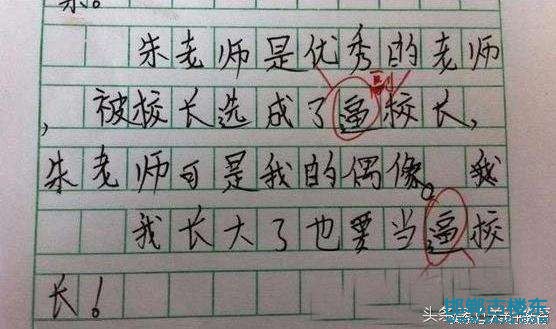 朱老师是优秀的老师
副
，被校长选成了逼校长，
朱老师可是我的偶像。我
我长大了也要当逼校
长！
邯郸古楼东